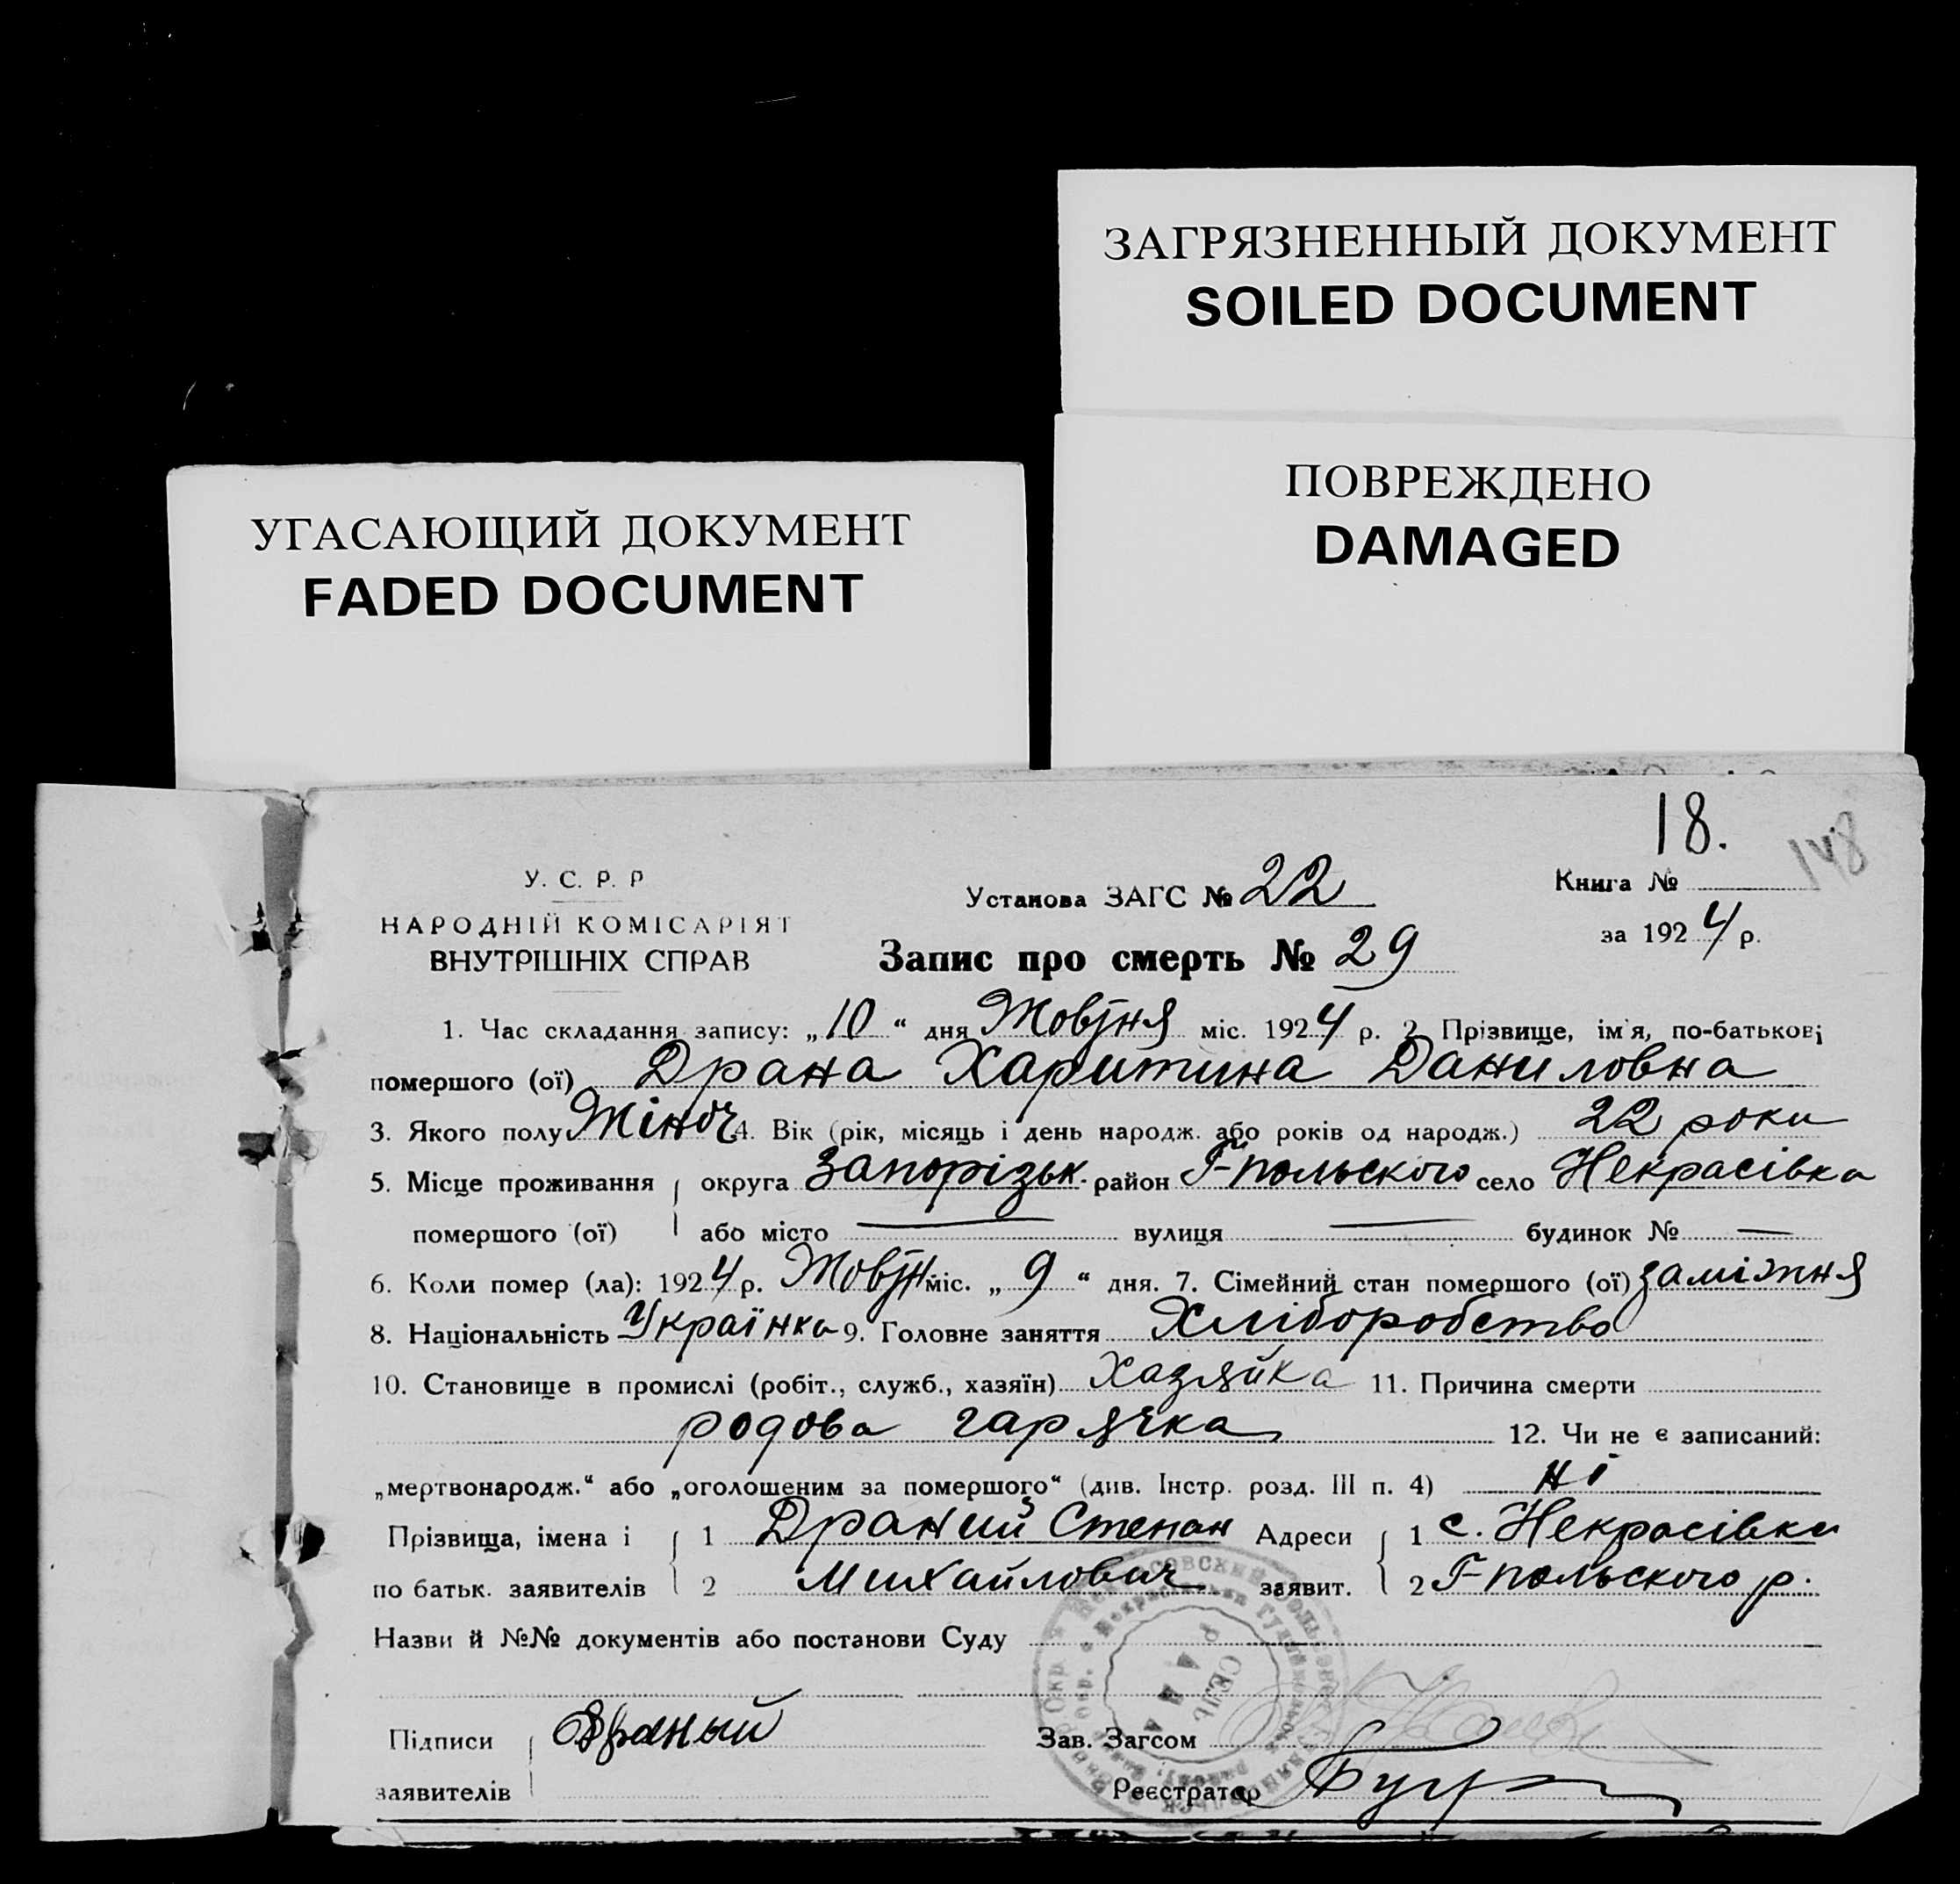 ЗАГРЯЗНЕННЫЙ ДОКУМЕНТ
SOILED DOCUMENT
ПОВРЕЖДЕНО
DAMAGED
УГАСАЮЩИЙ ДОКУМЕНТ
FADED DOCUMENT
18.
148
У. С. Р. Р
НАРОДНІЙ КОМІСАРІЯТ
ВНУТРІШНІХ СПРАВ
Установа ЗАГС № 22
Книга №
за 1924 р.
Запис про смерть № 29
1. Час складання запису: „10“ дня Жовтня міс. 1924 р. 2. Прізвище, ім'я, по-батькові
помершого (ої) Драна Харитина Даниловна
3. Якого полу Жіноч 4. Вік (рік, місяць і день народж. або років од народж.) 22 роки
5. Місце проживання округа Запорізьк. район Г-польского село Некрасівка
помершого (ої) або місто — вулиця — будинок № —
6. Коли помер (ла): 1924 р. Жовтн міс. „9“ дня. 7. Сімейний стан помершого (ої) заміжня
8. Національність Українка 9. Головне заняття Хліборобство
10. Становище в промислі (робіт., служб., хазяїн) Хазяйка 11. Причина смерти
родова гарячка 12. Чи не є записаний:
„мертвонародж.“ або „оголошеним за помершого“ (див. Інстр. розд. III п. 4) ні
Прізвища, імена і 1 Драний Степан Адреси 1 с. Некрасівки
по батьк. заявителів 2 Михайлович заявит. 2 Г-польского р.
Назви й №№ документів або постанови Суду
Підписи Драный Зав. Загсом
заявителів Реєстратор
СЕЛЬ